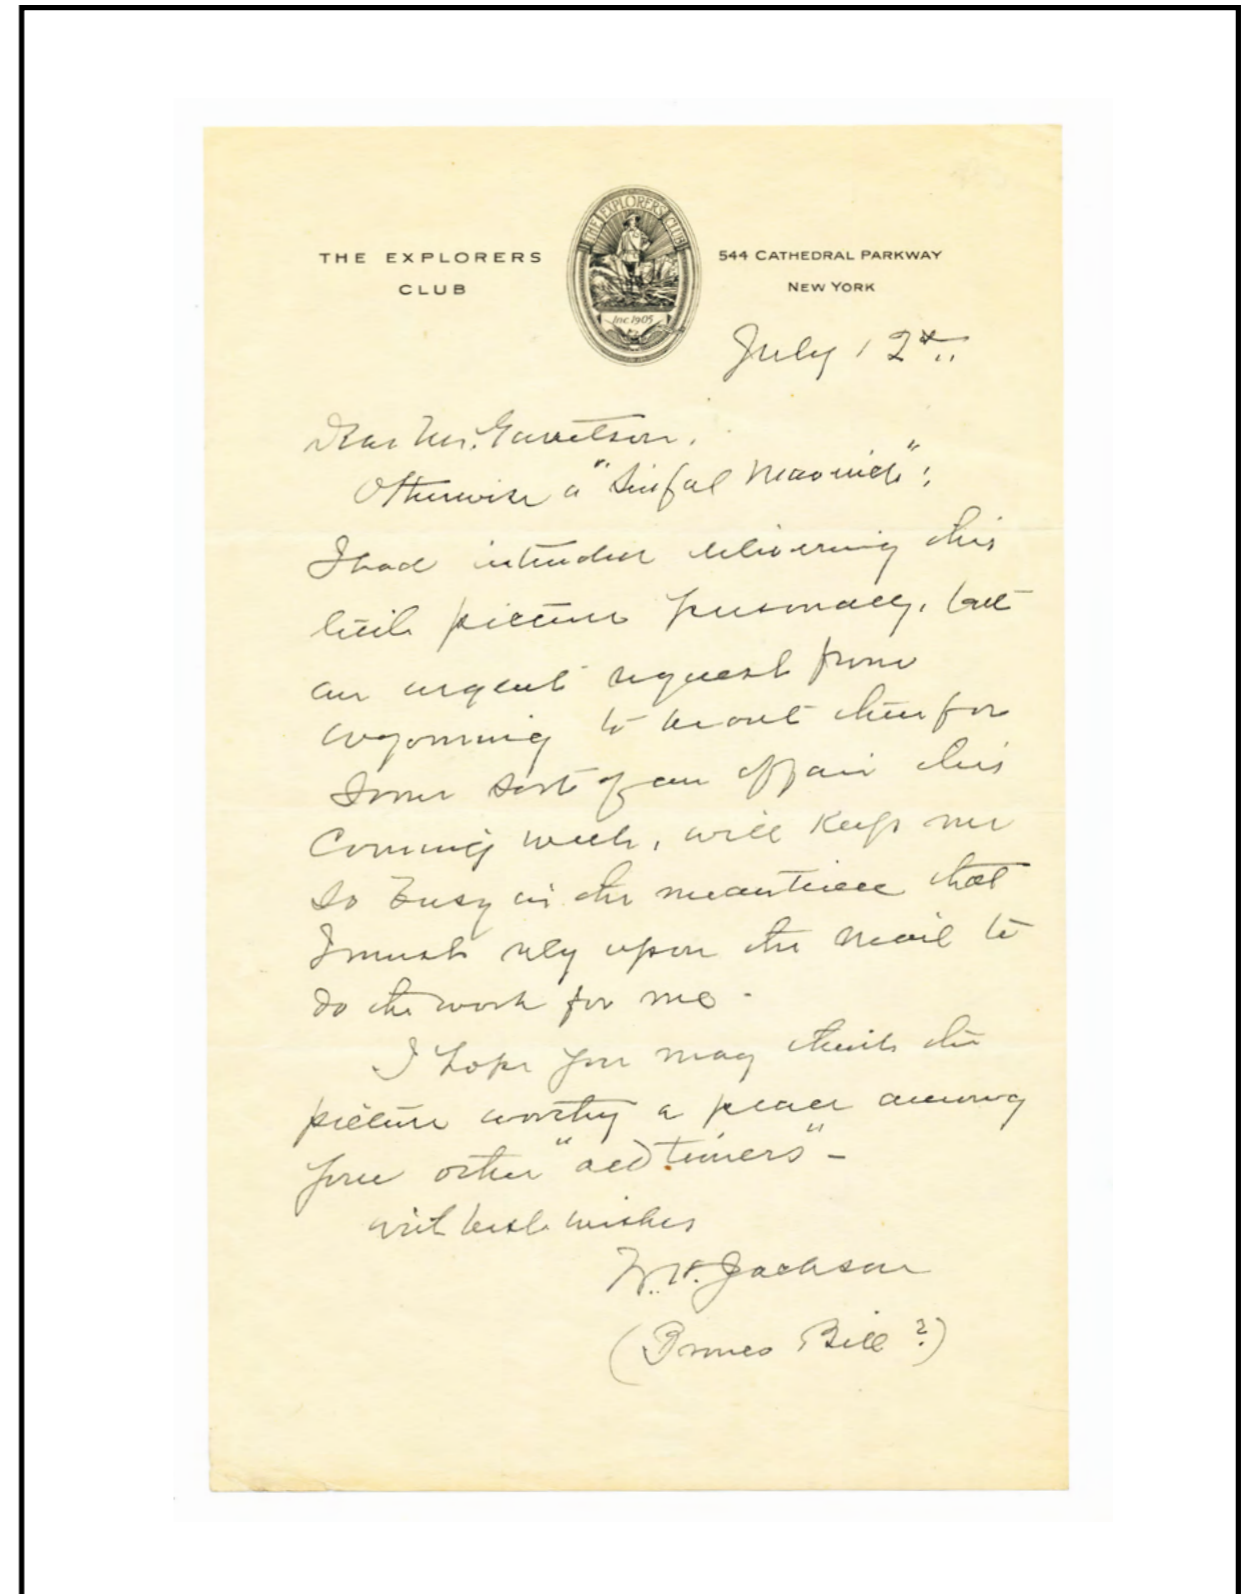 THE EXPLORERS
CLUB
THE EXPLORERS CLUB
Inc 1905
544 CATHEDRAL PARKWAY
NEW YORK
July 12th
Dear Mr. Garretson.
Otherwise a "Sinful Maverick":
I had intended delivering this
little picture personally, but
an urgent request from
Wyoming to be out there for
some sort of an affair this
coming week, will keep me
so busy in the meantime that
I must rely upon the mail to
do the work for me -
I hope you may think the
picture worthy a place among
your other "old timers" -
with best wishes
W. H. Jackson
(Bronco Bill?)